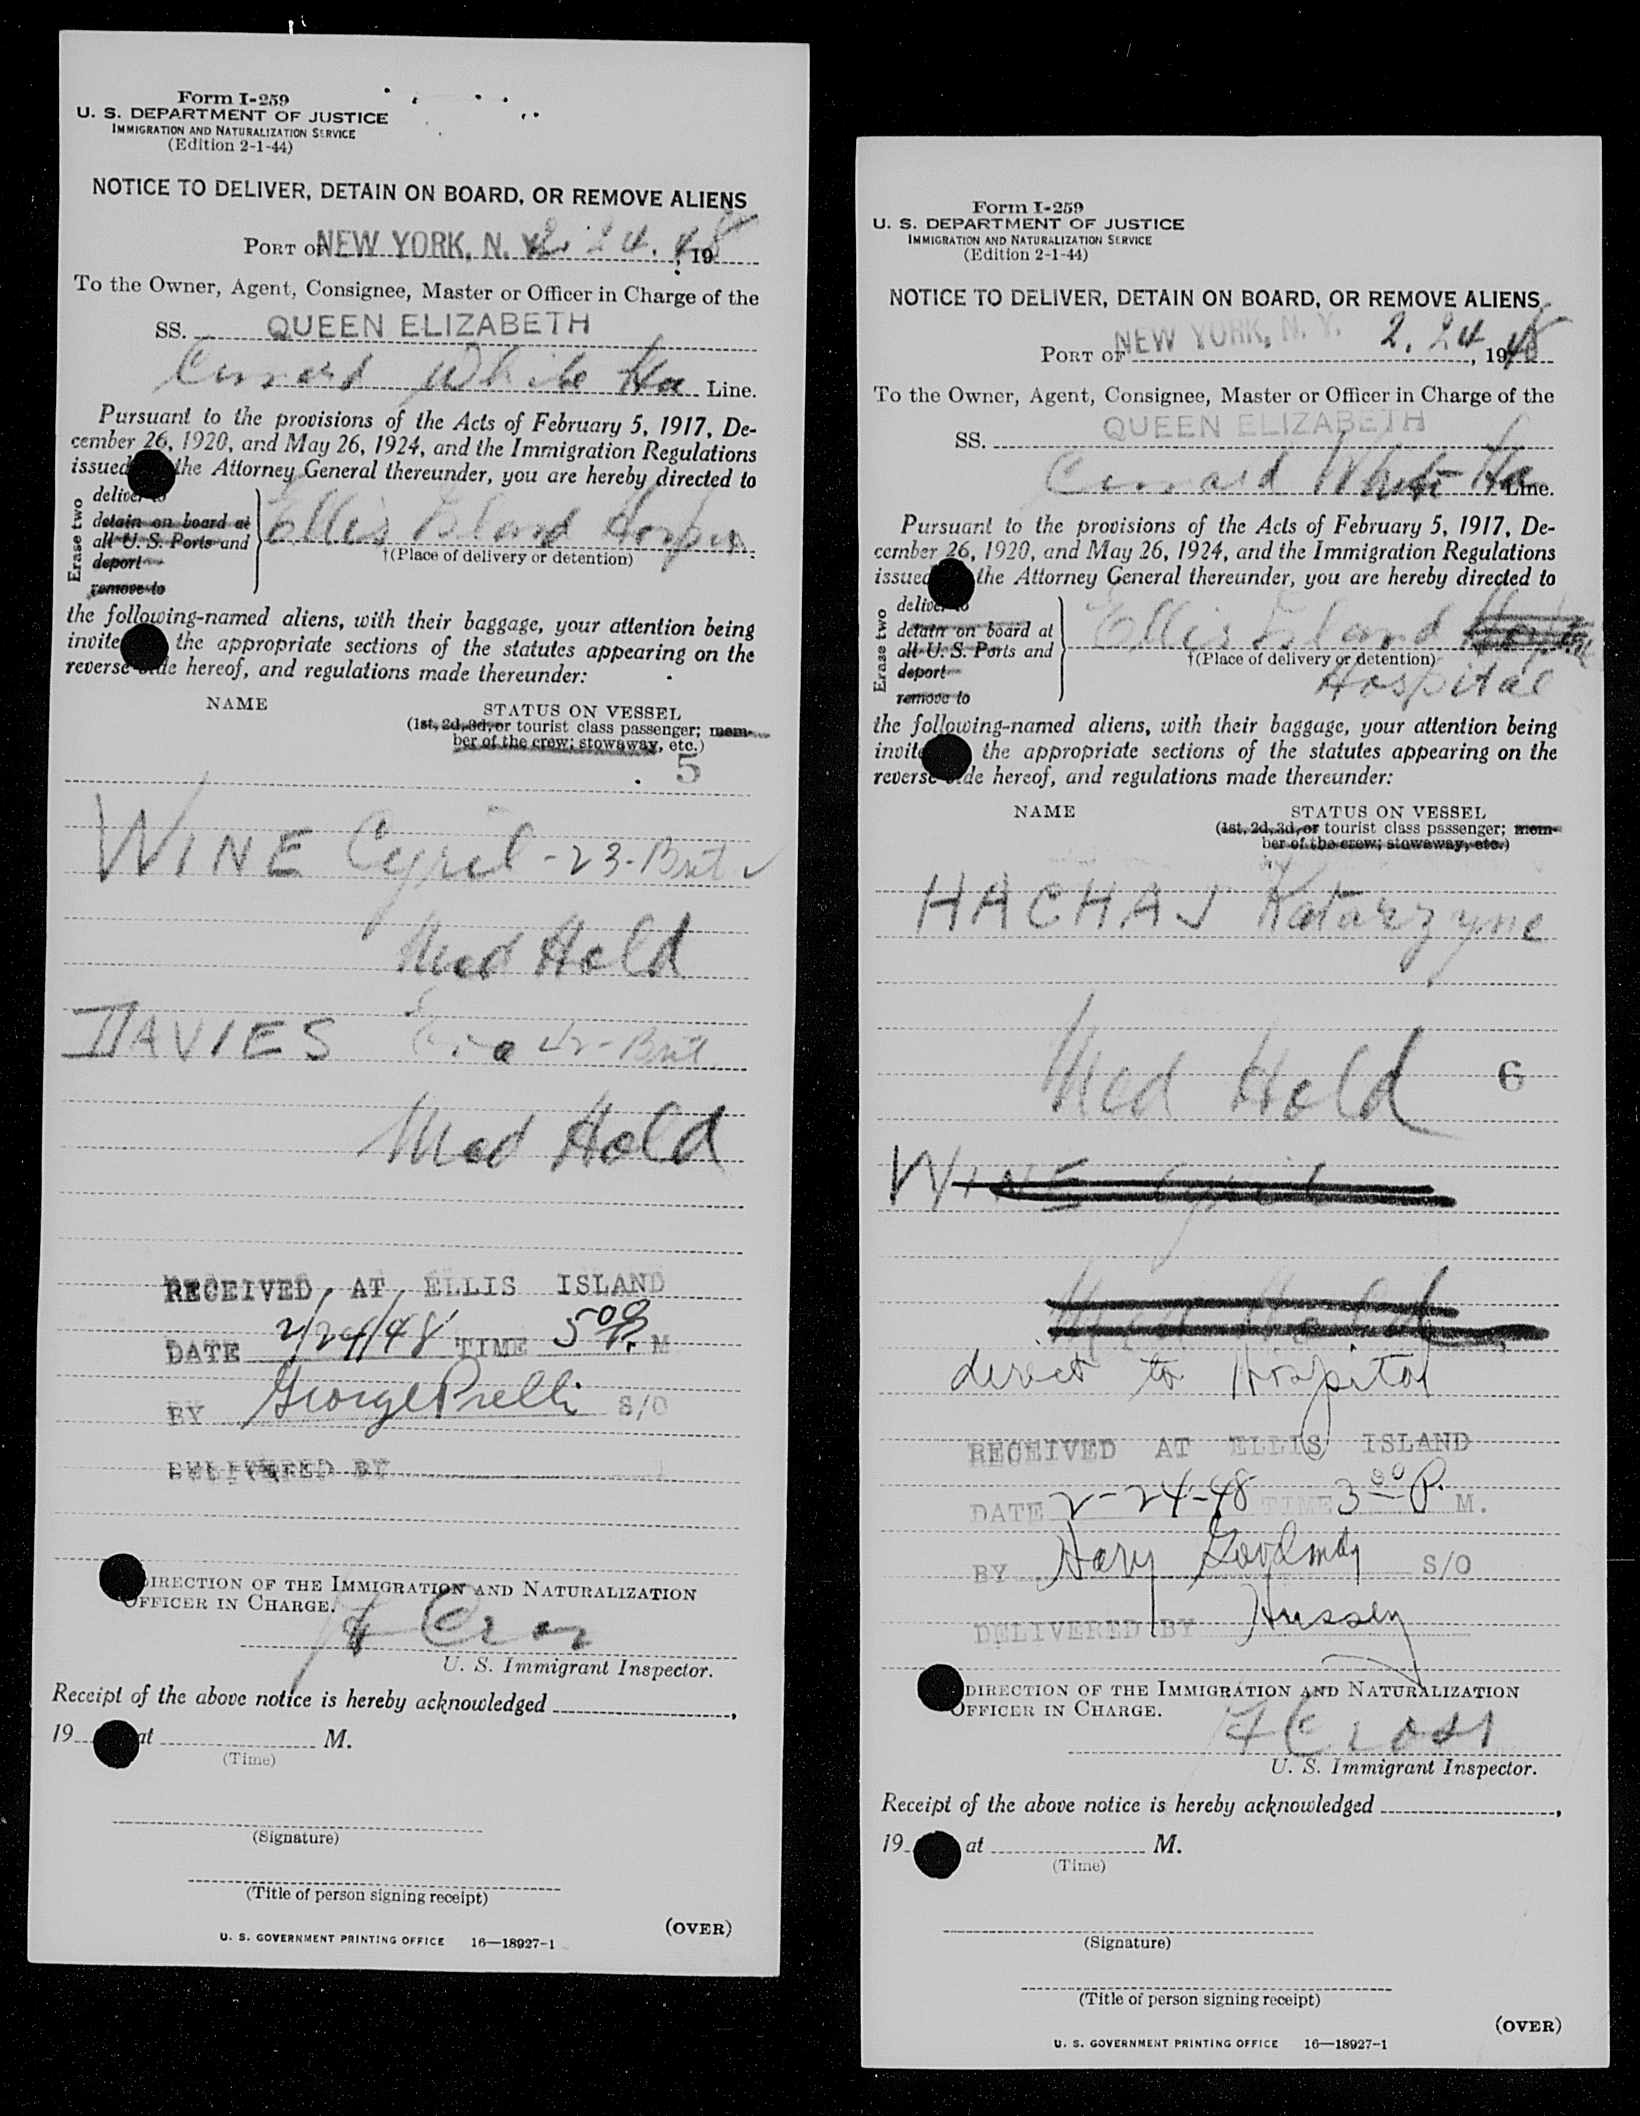 Form I-259
U. S. DEPARTMENT OF JUSTICE
IMMIGRATION AND NATURALIZATION SERVICE
(Edition 2-1-44)
NOTICE TO DELIVER, DETAIN ON BOARD, OR REMOVE ALIENS
PORT OF NEW YORK, N. Y. 2. 24. 48, 19
To the Owner, Agent, Consignee, Master or Officer in Charge of the
SS. QUEEN ELIZABETH
Cunard White Line.
Pursuant to the provisions of the Acts of February 5, 1917, De-
cember 26, 1920, and May 26, 1924, and the Immigration Regulations
issued the Attorney General thereunder, you are hereby directed to
Erase two
deliver to
detain on board at
all U. S. Ports and
deport
remove to
Ellis Island
†(Place of delivery or detention)
the following-named aliens, with their baggage, your attention being
invite the appropriate sections of the statutes appearing on the
reverse side hereof, and regulations made thereunder:
NAME
STATUS ON VESSEL
(1st, 2d, 3d, or tourist class passenger; mem-
ber of the crew; stowaway, etc.)
5
WINE Cyril - 23 - Brit ✓
Med Held
DAVIES Brit
Med Hold
RECEIVED AT ELLIS ISLAND
DATE 2/24/48 TIME 5 00 P. M
BY George Prelli S/O
DELIVERED BY
DIRECTION OF THE IMMIGRATION AND NATURALIZATION
OFFICER IN CHARGE.
U. S. Immigrant Inspector.
Receipt of the above notice is hereby acknowledged ,
19 at M.
(Time)
(Signature)
(Title of person signing receipt)
(OVER)
U. S. GOVERNMENT PRINTING OFFICE 16—18927-1
Form I-259
U. S. DEPARTMENT OF JUSTICE
IMMIGRATION AND NATURALIZATION SERVICE
(Edition 2-1-44)
NOTICE TO DELIVER, DETAIN ON BOARD, OR REMOVE ALIENS
PORT OF NEW YORK, N. Y. 2. 24, 1948
To the Owner, Agent, Consignee, Master or Officer in Charge of the
SS. QUEEN ELIZABETH
Cunard White Line.
Pursuant to the provisions of the Acts of February 5, 1917, De-
cember 26, 1920, and May 26, 1924, and the Immigration Regulations
issued the Attorney General thereunder, you are hereby directed to
Erase two
deliver to
detain on board at
all U. S. Ports and
deport
remove to
Ellis Island
†(Place of delivery or detention)
Hospital
the following-named aliens, with their baggage, your attention being
invite the appropriate sections of the statutes appearing on the
reverse side hereof, and regulations made thereunder:
NAME
STATUS ON VESSEL
(1st, 2d, 3d, or tourist class passenger; mem-
ber of the crew; stowaway, etc.)
HACHAJ Katarzyne
Med Hold
6
WINE Cyril
Med Hold
direct to Hospital
RECEIVED AT ELLIS ISLAND
DATE 2-24-48 TIME 3 00 P. M.
BY Harry Goodman S/O
DELIVERED BY Hussey
DIRECTION OF THE IMMIGRATION AND NATURALIZATION
OFFICER IN CHARGE.
F Cross
U. S. Immigrant Inspector.
Receipt of the above notice is hereby acknowledged ,
19 at M.
(Time)
(Signature)
(Title of person signing receipt)
(OVER)
U. S. GOVERNMENT PRINTING OFFICE 16—18927-1